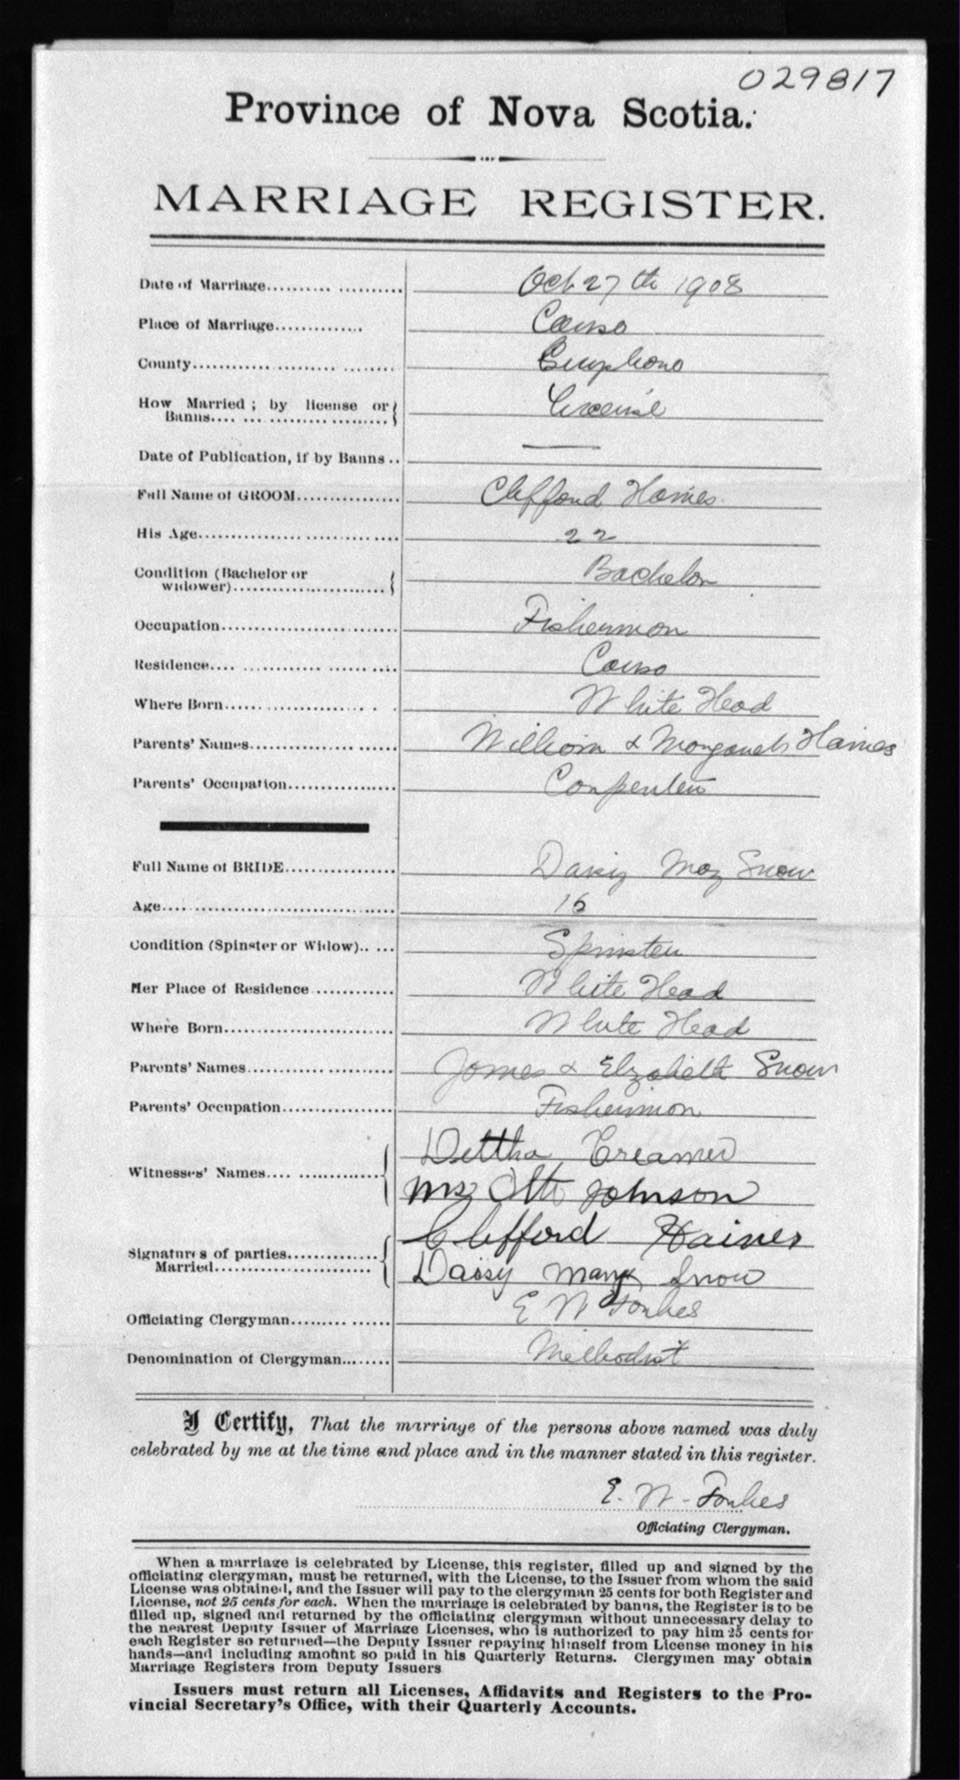 029817
Province of Nova Scotia.
MARRIAGE REGISTER.
Date of Marriage.......... Oct 27th 1908
Place of Marriage............. Canso
County.............................. Guysboro
How Married; by license or Banns.................... License
Date of Publication, if by Banns.. —
Full Name of GROOM............... Clifford Haines
His Age............................. 22
Condition (Bachelor or widower)...................... Bachelor
Occupation.......................... Fisherman
Residence.......................... Canso
Where Born....................... White Head
Parents' Names.................... William & Margaret Haines
Parents' Occupation................ Carpenter
Full Name of BRIDE................ Daisy May Snow
Age.................................
Condition (Spinster or Widow)..... Spinster
Her Place of Residence ............ White Head
Where Born........................ White Head
Parents' Names.................... James & Elizabeth Snow
Parents' Occupation................ Fisherman
Witnesses' Names................. Creamer
Mrs Otto Johnson
Signatures of parties Married...................... Clifford Haines
Daisy May Snow
Officiating Clergyman............. E W Forbes
Denomination of Clergyman....... Methodist
I Certify, That the marriage of the persons above named was duly
celebrated by me at the time and place and in the manner stated in this register.
E. W. Forbes
Officiating Clergyman.
When a marriage is celebrated by License, this register, filled up and signed by the
officiating clergyman, must be returned, with the License, to the Issuer from whom the said
License was obtained, and the Issuer will pay to the clergyman 25 cents for both Register and
License, not 25 cents for each. When the marriage is celebrated by banns, the Register is to be
filled up, signed and returned by the officiating clergyman without unnecessary delay to
the nearest Deputy Issuer of Marriage Licenses, who is authorized to pay him 25 cents for
each Register so returned—the Deputy Issuer repaying himself from License money in his
hands—and including amount so paid in his Quarterly Returns. Clergymen may obtain
Marriage Registers from Deputy Issuers
Issuers must return all Licenses, Affidavits and Registers to the Pro-
vincial Secretary's Office, with their Quarterly Accounts.